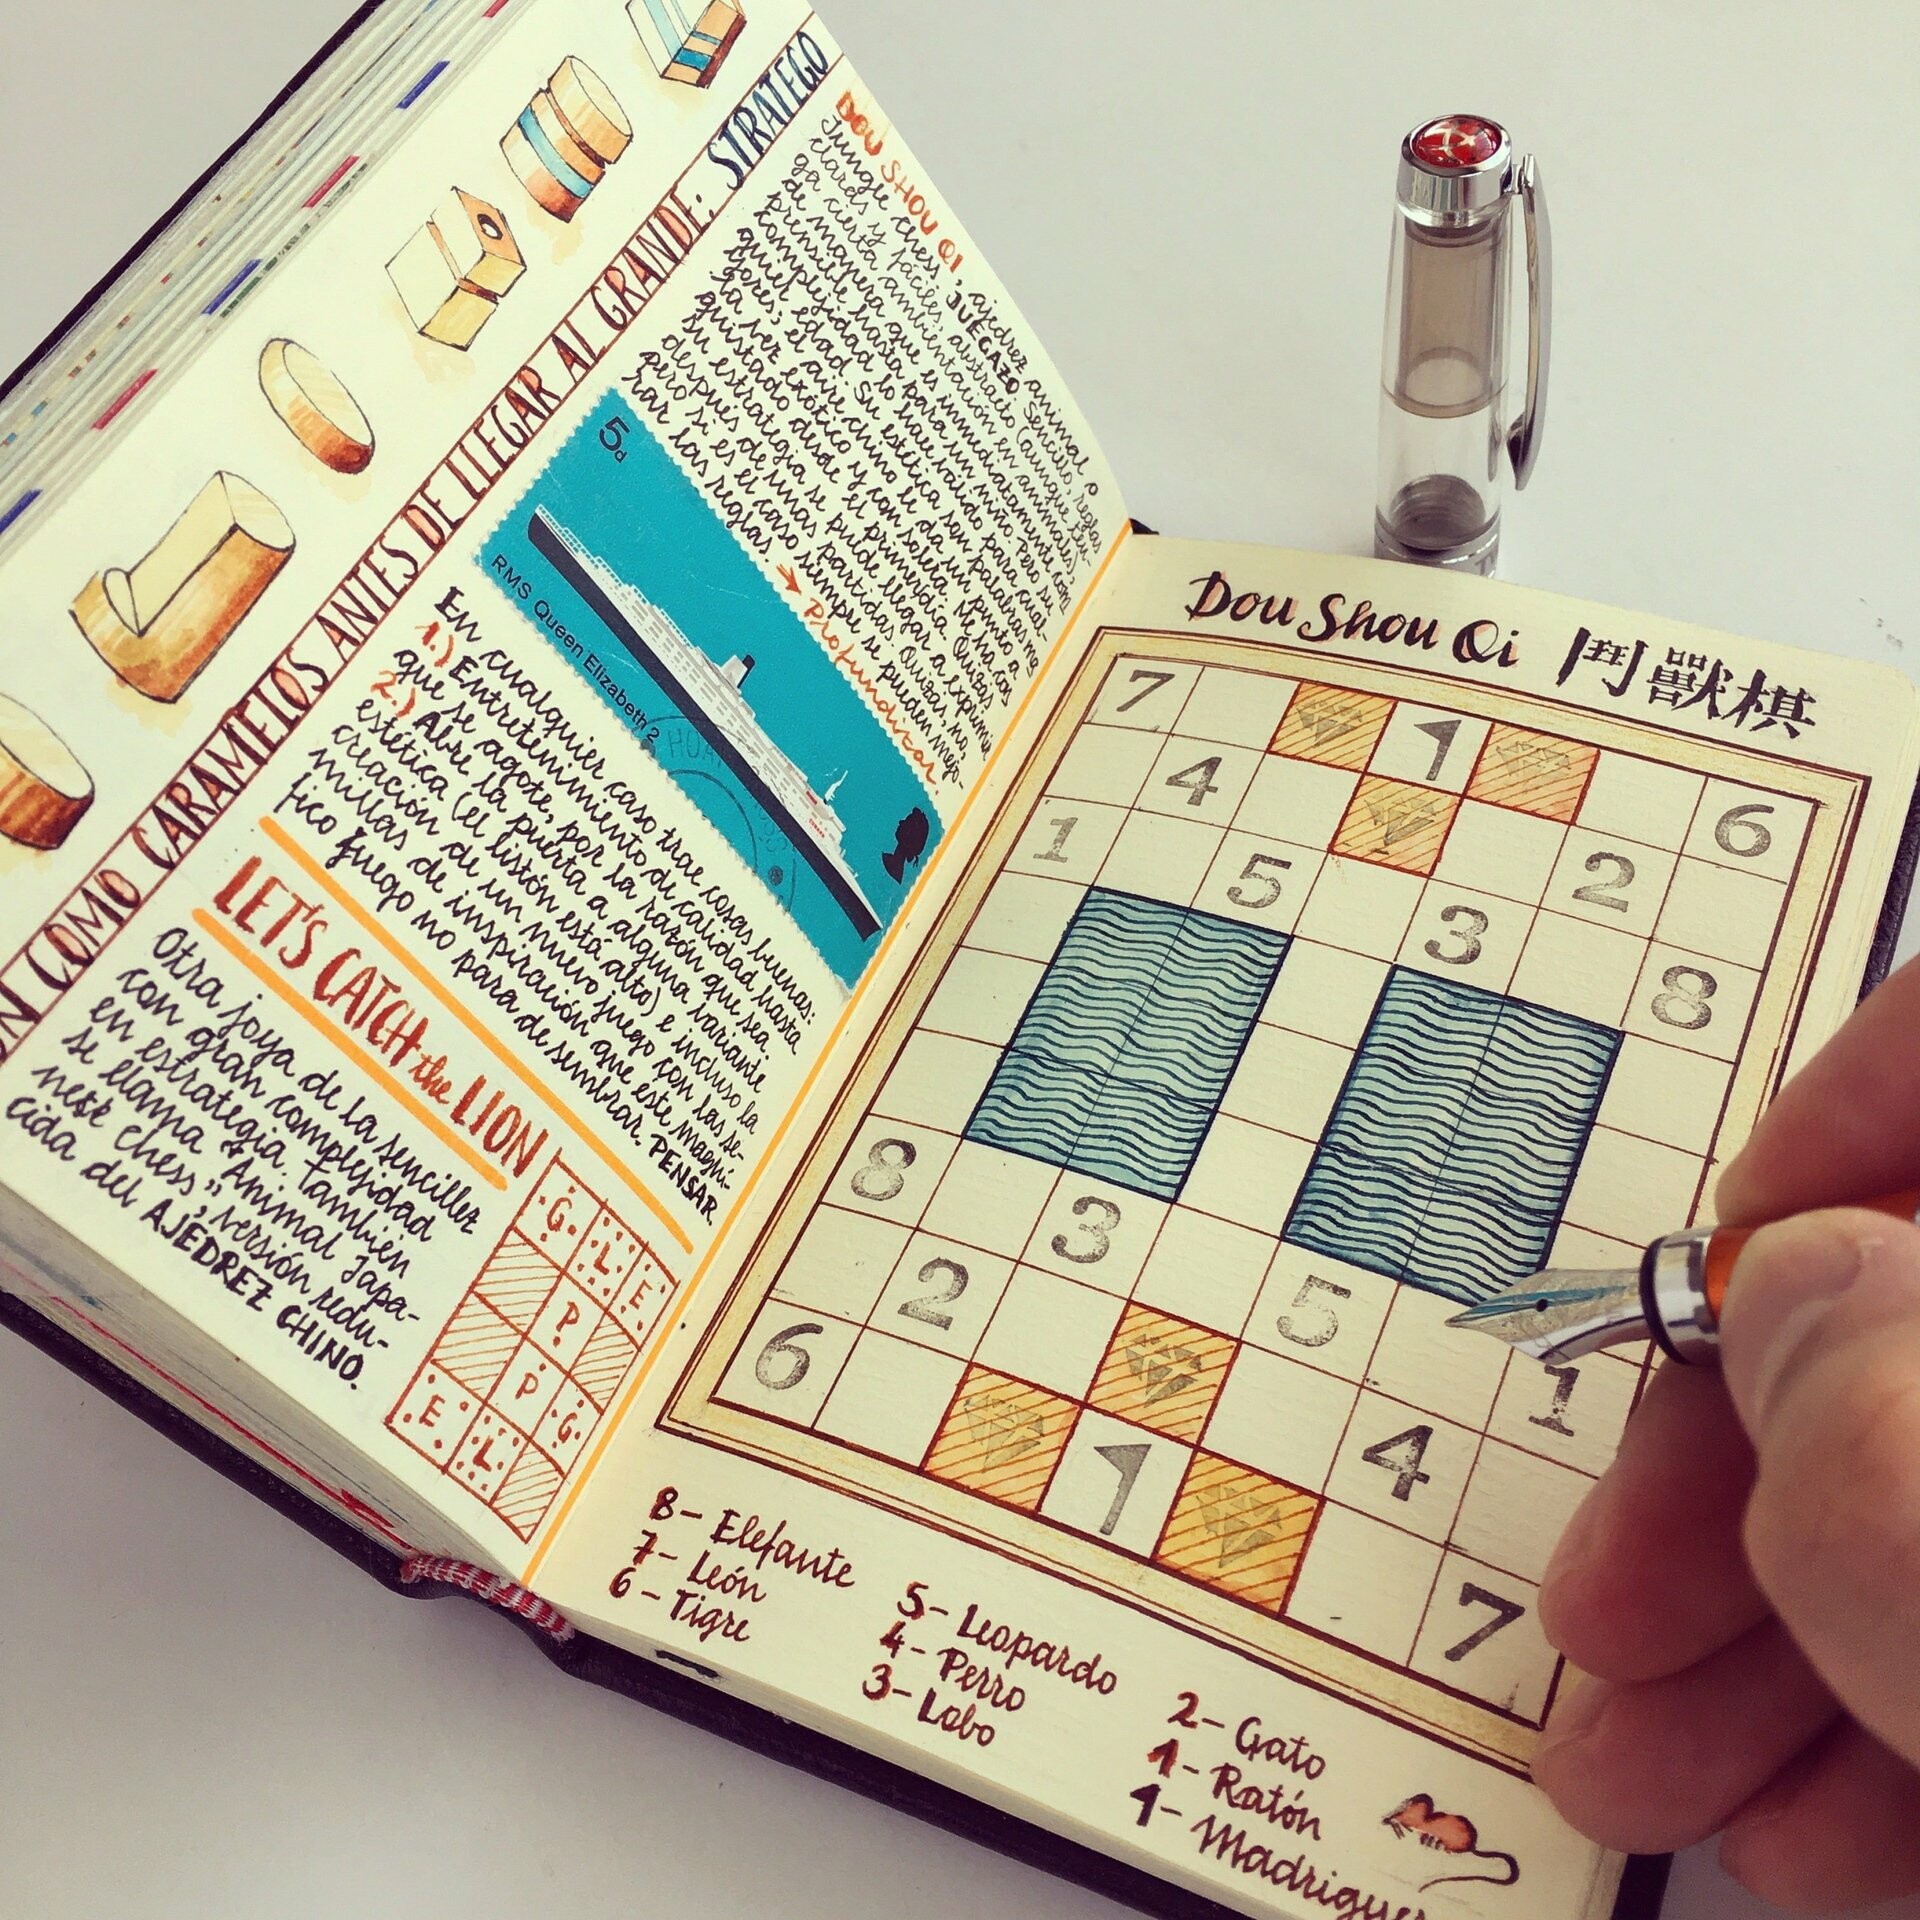 ON COMO CARAMELOS ANTES DE LLEGAR AL GRANDE: STRATEGO
DOU SHOU QI, ajedrez animal o
Jungle chess, JUEGAZO. Sencillo, reglas
claras y fáciles, abstracto (aunque ten-
ga cierta ambientación en animales),
de manera que es inmediatamente com
prensible hasta para un niño. Pero su
complejidad lo hace válido para cual-
quier edad. Su estética son palabras ma
yores; el aire chino le da un punto a
la vez exótico y con solera. Me ha con
quistado desde el primer día. Quizás
su estrategia se puede llegar a exprimir
después de unas partidas. Quizás, no,
pero si es el caso siempre se pueden mejo-
rar las reglas. → Profundizar.
5d
RMS Queen Elizabeth 2
En cualquier caso trae cosas buenas:
1.) Entretenimiento de calidad hasta
que se agote, por la razón que sea.
2.) Abre la puerta a alguna variante
estética (el listón está alto) e incluso la
creación de un nuevo juego con las se-
millas de inspiración que este magní-
fico juego no para de sembrar. PENSAR.
LET'S CATCH the LION
Otra joya de la sencillez
con gran complejidad
en estrategia. También
se llama "Animal Japa-
nese Chess", versión redu-
cida del AJEDREZ CHINO.
G L E
P
P
E L G
Dou Shou Qi 鬥獸棋
7 1
4 6
1 5 2
3 8
8 3
2 5 1
6 4
1 7
8 - Elefante
7 - León
6 - Tigre
5 - Leopardo
4 - Perro
3 - Lobo
2 - Gato
1 - Ratón
1 - Madriguer